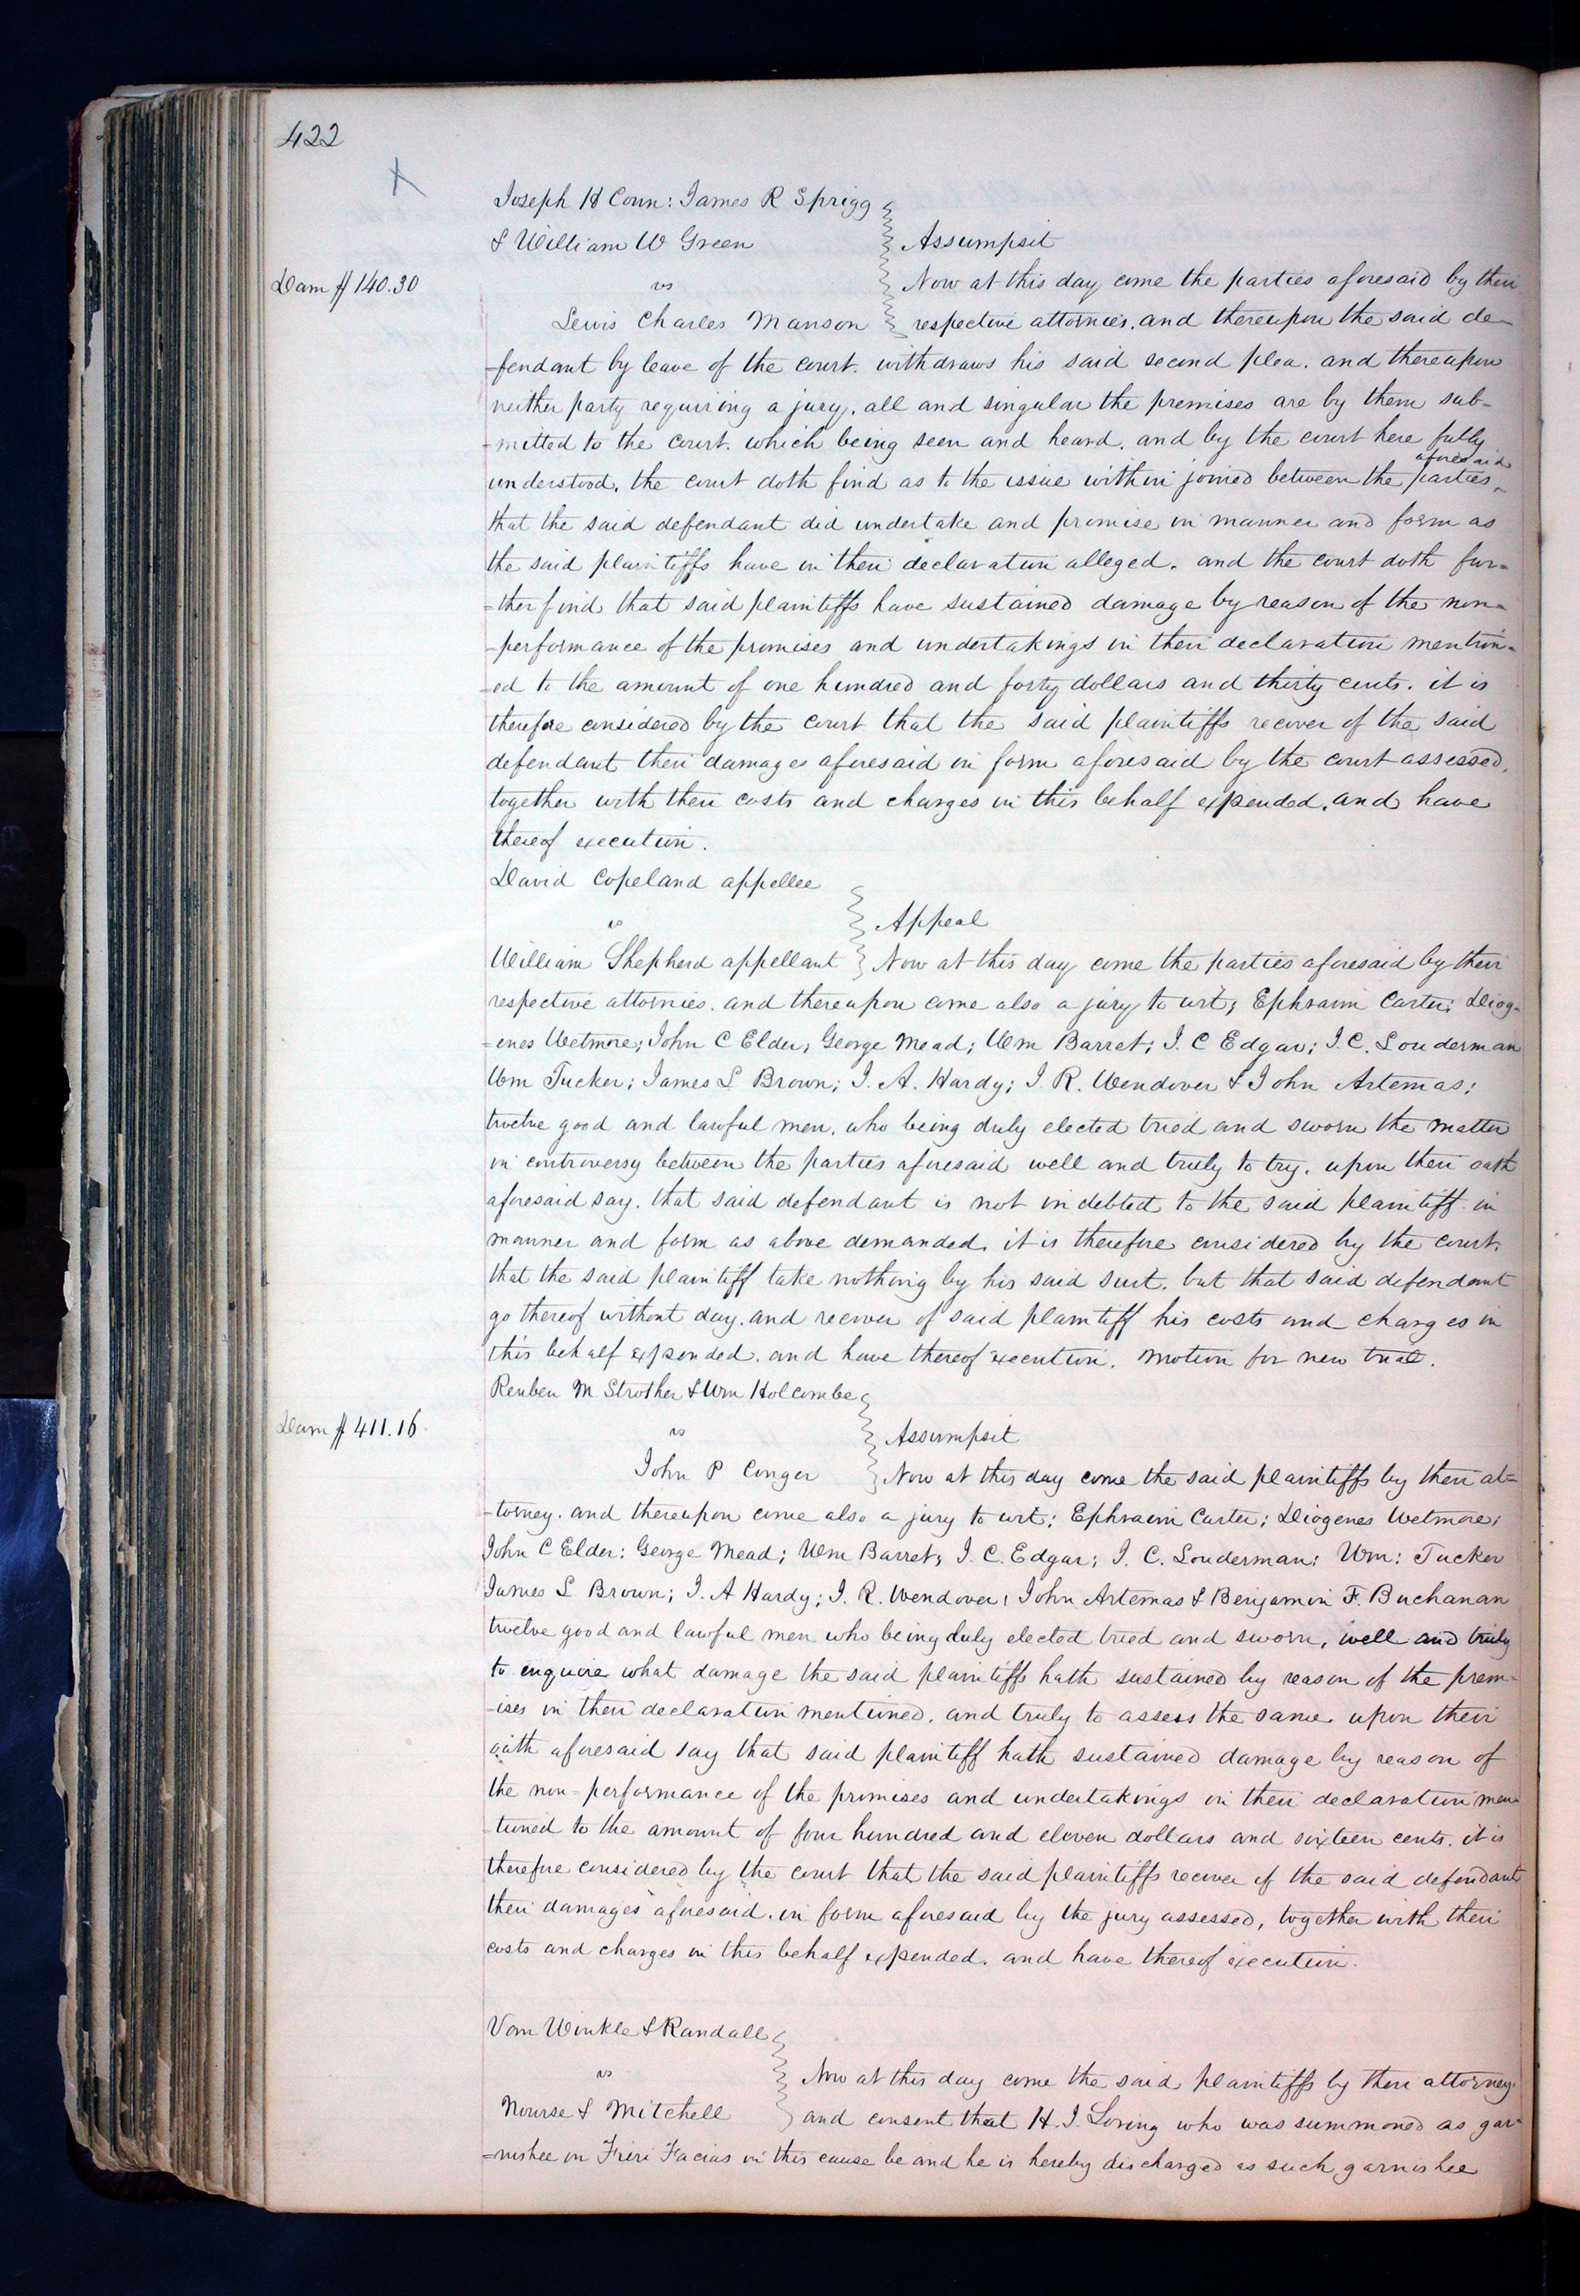 422
Joseph H Conn: James R Sprigg
& William W Green
Assumpsit
Dam $140.30
vs
Now at this day come the parties aforesaid by their
Lewis Charles Manson
respective attornies. and thereupon the said de-
-fendant by leave of the court. withdraws his said second plea. and thereupon
neither party requiring a jury. all and singular the premises are by them sub-
-mitted to the court. which being seen and heard. and by the court here fully
understood. the court doth find as to the issue within joined between the parties aforesaid
that the said defendant did undertake and promise in manner and form as
the said plaintiffs have in their declaration alleged. and the court doth fur-
-ther find that said plaintiffs have sustained damage by reason of the non-
-performance of the promises and undertakings in their declaration mention-
-ed to the amount of one hundred and forty dollars and thirty cents. it is
therefore considered by the court that the said plaintiffs recover of the said
defendant their damages aforesaid in form aforesaid by the court assessed,
together with their costs and charges in this behalf expended. and have
thereof execution.
David Copeland appellee
vs
Appeal
William Shepherd appellant
Now at this day come the parties aforesaid by their
respective attornies. and thereupon come also a jury to wit; Ephraim Carter; Diog-
-enes Wetmore; John C Elder; George Mead; Wm Barret; J. C Edgar; J. C. Louderman
Wm Tucker; James L Brown; J. A. Hardy; J. R. Wendover & John Artemas;
twelve good and lawful men. who being duly elected tried and sworn the matter
in controversy between the parties aforesaid well and truly to try. upon their oath
aforesaid say. that said defendant is not indebted to the said plaintiff in
manner and form as above demanded. it is therefore considered by the court.
that the said plaintiff take nothing by his said suit. but that said defendant
go thereof without day. and recover of said plaintiff his costs and charges in
this behalf expended. and have thereof execution. Motion for new trial.
Reuben M Strother & Wm Holcombe
Dam $411.16
vs
Assumpsit
John P Conger
Now at this day come the said plaintiffs by their at-
-torney. and thereupon come also a jury to wit: Ephraim Carter; Diogenes Wetmore;
John C Elder: George Mead; Wm Barret; J. C. Edgar; J. C. Louderman: Wm: Tucker
James L Brown; J. A Hardy; J. R. Wendover; John Artemas & Benjamin F. Buchanan
twelve good and lawful men who being duly elected tried and sworn, well and truly
to enquire what damage the said plaintiffs hath sustained by reason of the prem-
-ises in their declaration mentioned. and truly to assess the same. upon their
oath aforesaid say that said plaintiff hath sustained damage by reason of
the non-performance of the promises and undertakings in their declaration men-
-tioned to the amount of four hundred and eleven dollars and sixteen cents. it is
therefore considered by the court that the said plaintiffs recover of the said defendant
their damages aforesaid. in form aforesaid by the jury assessed, together with their
costs and charges in this behalf expended. and have thereof execution.
Van Winkle & Randall
vs
Now at this day come the said plaintiffs by their attorney.
Nourse & Mitchell
and consent that H. J. Loring who was summoned as gar-
-nishee on Fieri Facias in this cause be and he is hereby discharged as such garnishee